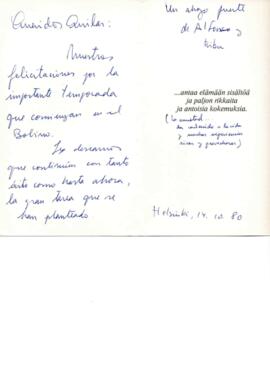 Queridos Aguilar:
Nuestras
felicitaciones por la
importante temporada
que comienzan en el
Bolívar.
Les deseamos
que continúen con tanto
éxito como hasta ahora,
la gran tarea que se
han planteado
Un abrazo fuerte
de Alfonso y
...antaa elämään sisältöä
ja paljon rikkaita
ja antoisia kokemuksia.
(La amistad...
da contenido a la vida
y muchas experiencias
ricas y provechosas)
Helsinki, 14.10.80